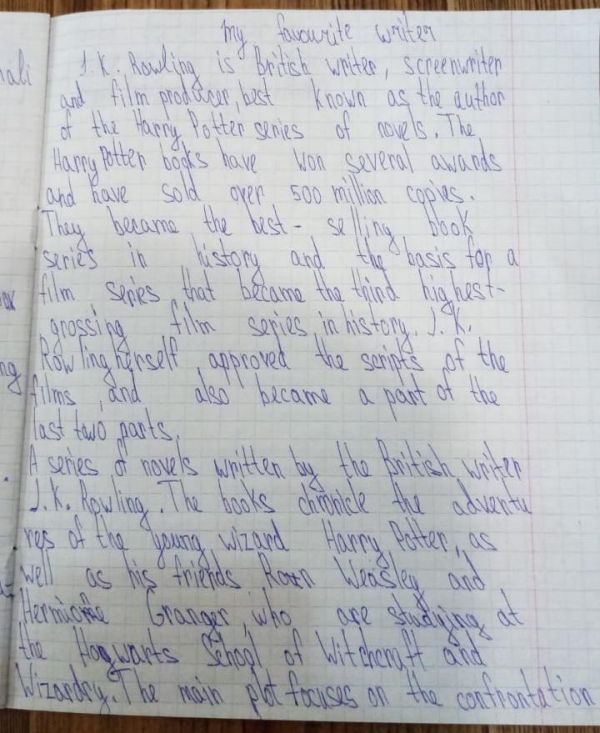 My favourite writer
J.K. Rowling is British writer, screenwriter
and film producer, best known as the author
of the Harry Potter series of novels. The
Harry Potter books have won several awards
and have sold over 500 million copies.
They became the best-selling book
series in history and the basis for a
film series that became the third highest-
grossing film series in history. J.K.
Rowling herself approved the scripts of the
films and also became a part of the
last two parts.
A series of novels written by the British writer
J.K. Rowling. The books chronicle the adventu
res of the young wizard Harry Potter, as
well as his friends Ron Weasley and
Hermione Granger, who are studying at
the Hogwarts School of Witchcraft and
Wizardry. The main plot focuses on the confrontation